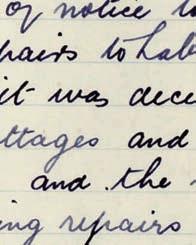 of notice to
pairs to Lab
it was dece
ttages and
and the
ing repairs